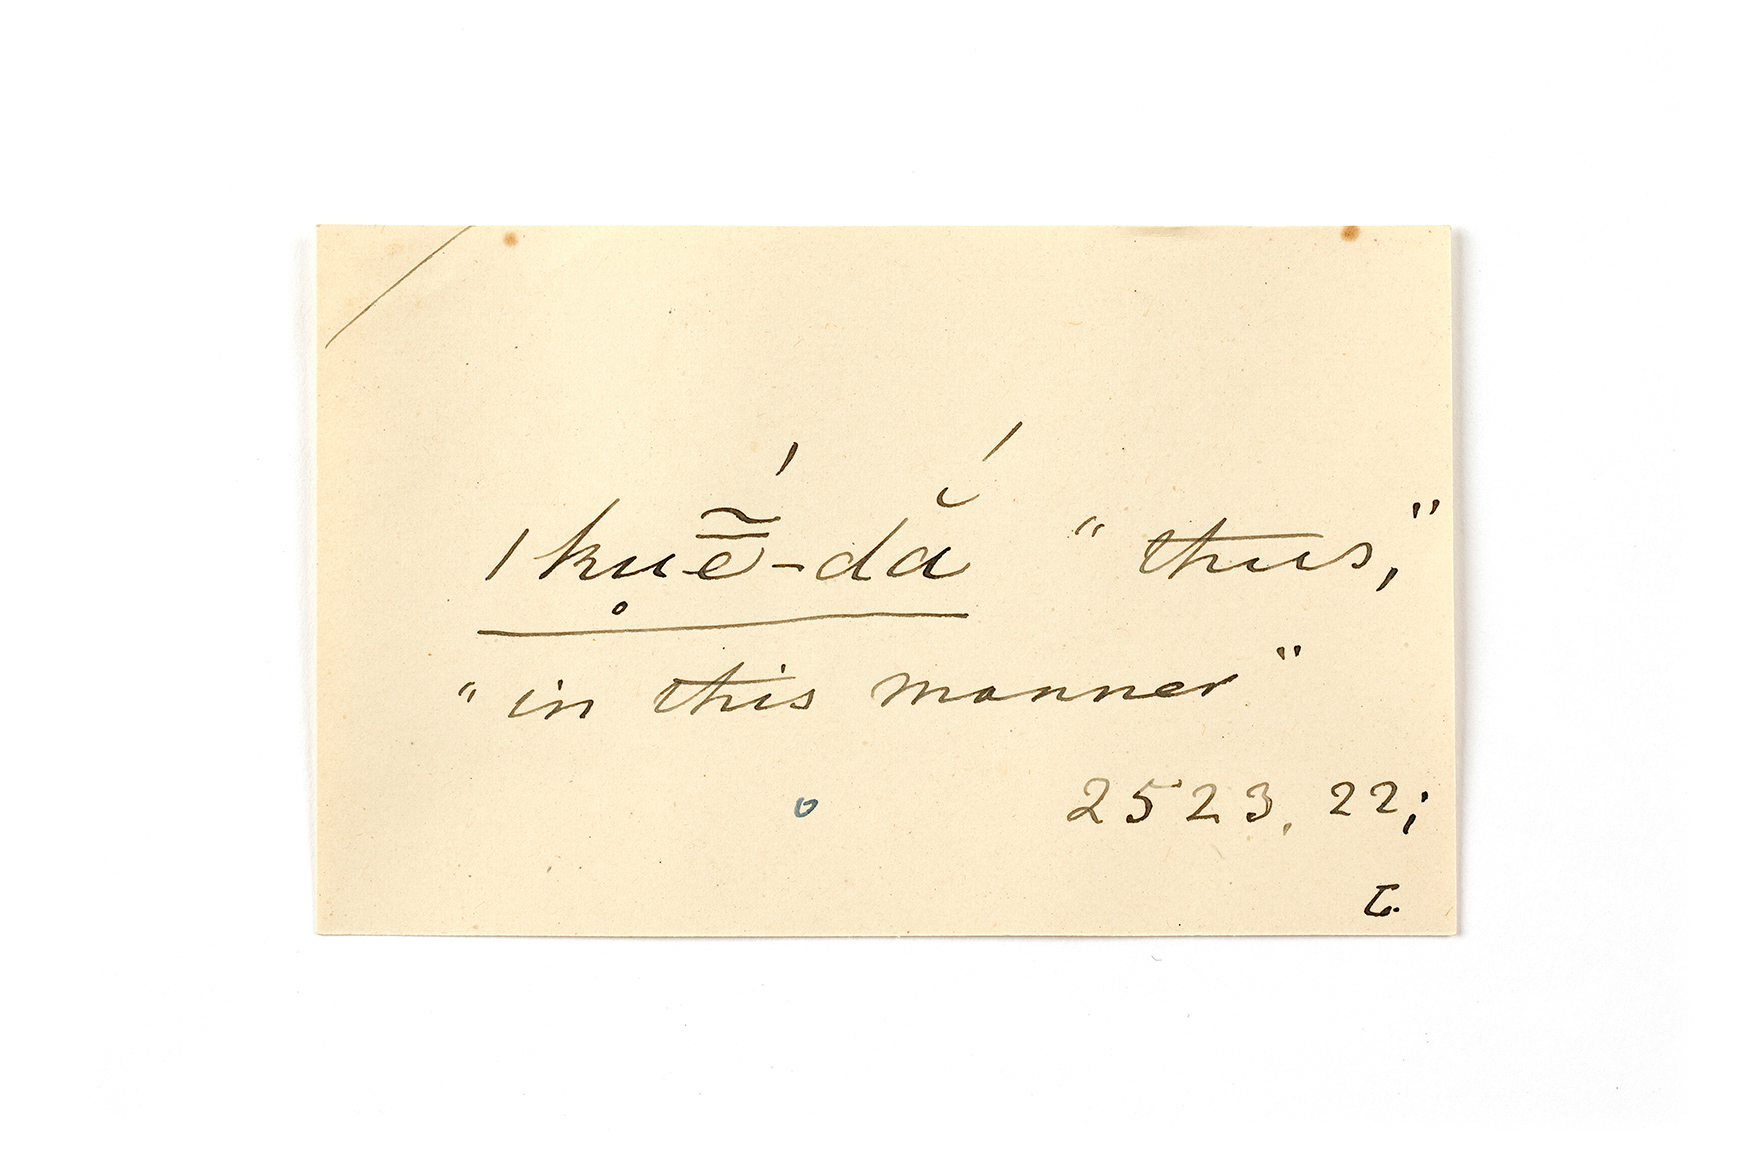 ǀkụē̃́-dắ "thus,"
"in this manner"
2523. 22;